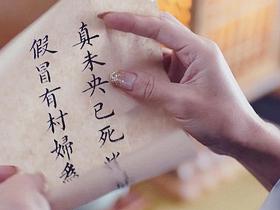 真未央已死
假冒有村婦